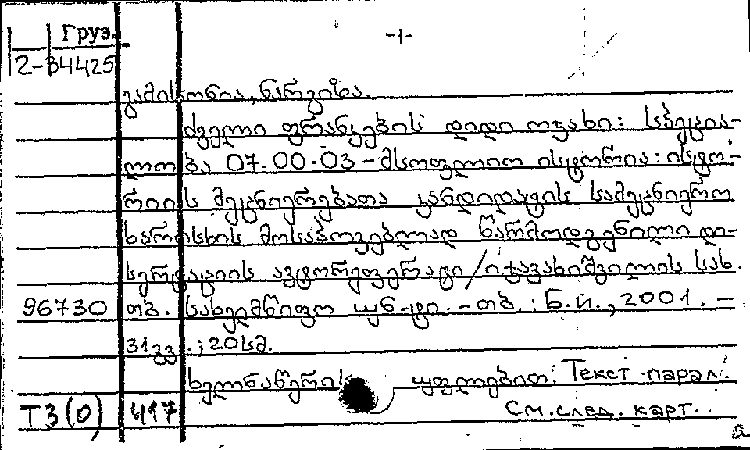 Груз.
-1-
2-34425
გამისონია, ნარგიზა.
ძველი ფრანკების დიდი ოჯახი: სპეცია-
ლობა 07.00.03 - მსოფლიო ისტორია: ისტო-
რიის მეცნიერებათა კანდიდატის სამეცნიერო
ხარისხის მოსაპოვებლად წარმოდგენილი დი-
სერტაციის ავტორეფერატი / ი. ჯავახიშვილის სახ.
96730 თბ. სახელმწიფო უნ-ტი. - თბ. : ნ. ი., 2001. -
31 გვ. ; 20 სმ.
ხელნაწერის უფლებით. Текст парал.
Т3(0) 417 См. след. карт.